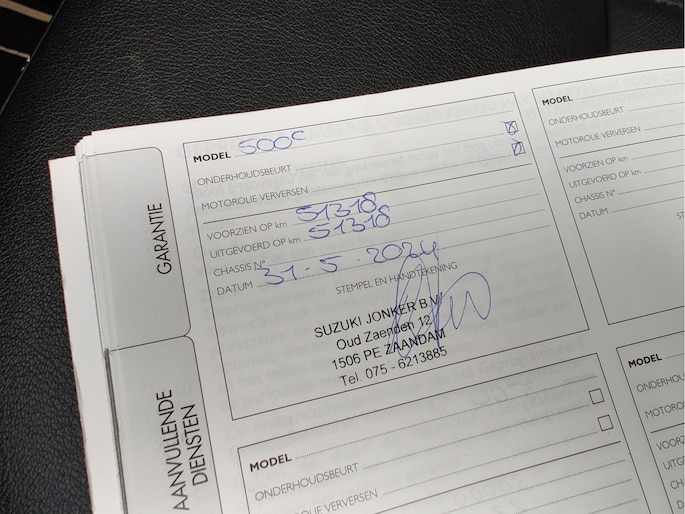 GARANTIE
AANVULLENDE
DIENSTEN
MODEL 500C
ONDERHOUDSBEURT
MOTOROLIE VERVERSEN
VOORZIEN OP km 51318
UITGEVOERD OP km 51318
CHASSIS N°
DATUM 31-5-2024
STEMPEL EN HANDTEKENING
SUZUKI JONKER B.V.
Oud Zaenden 12
1506 PE ZAANDAM
Tel. 075 - 6213885
MODEL
ONDERHOUDSBEURT
MOTOROLIE VERVERSEN
MODEL
ONDERHOUDSBEURT
MOTOROLIE VERVERSEN
VOORZIEN OP km
UITGEVOERD OP km
CHASSIS N°
DATUM
ST
MODEL
ONDERHOU
MOTORO
VOORZ
UITG
CHA
D